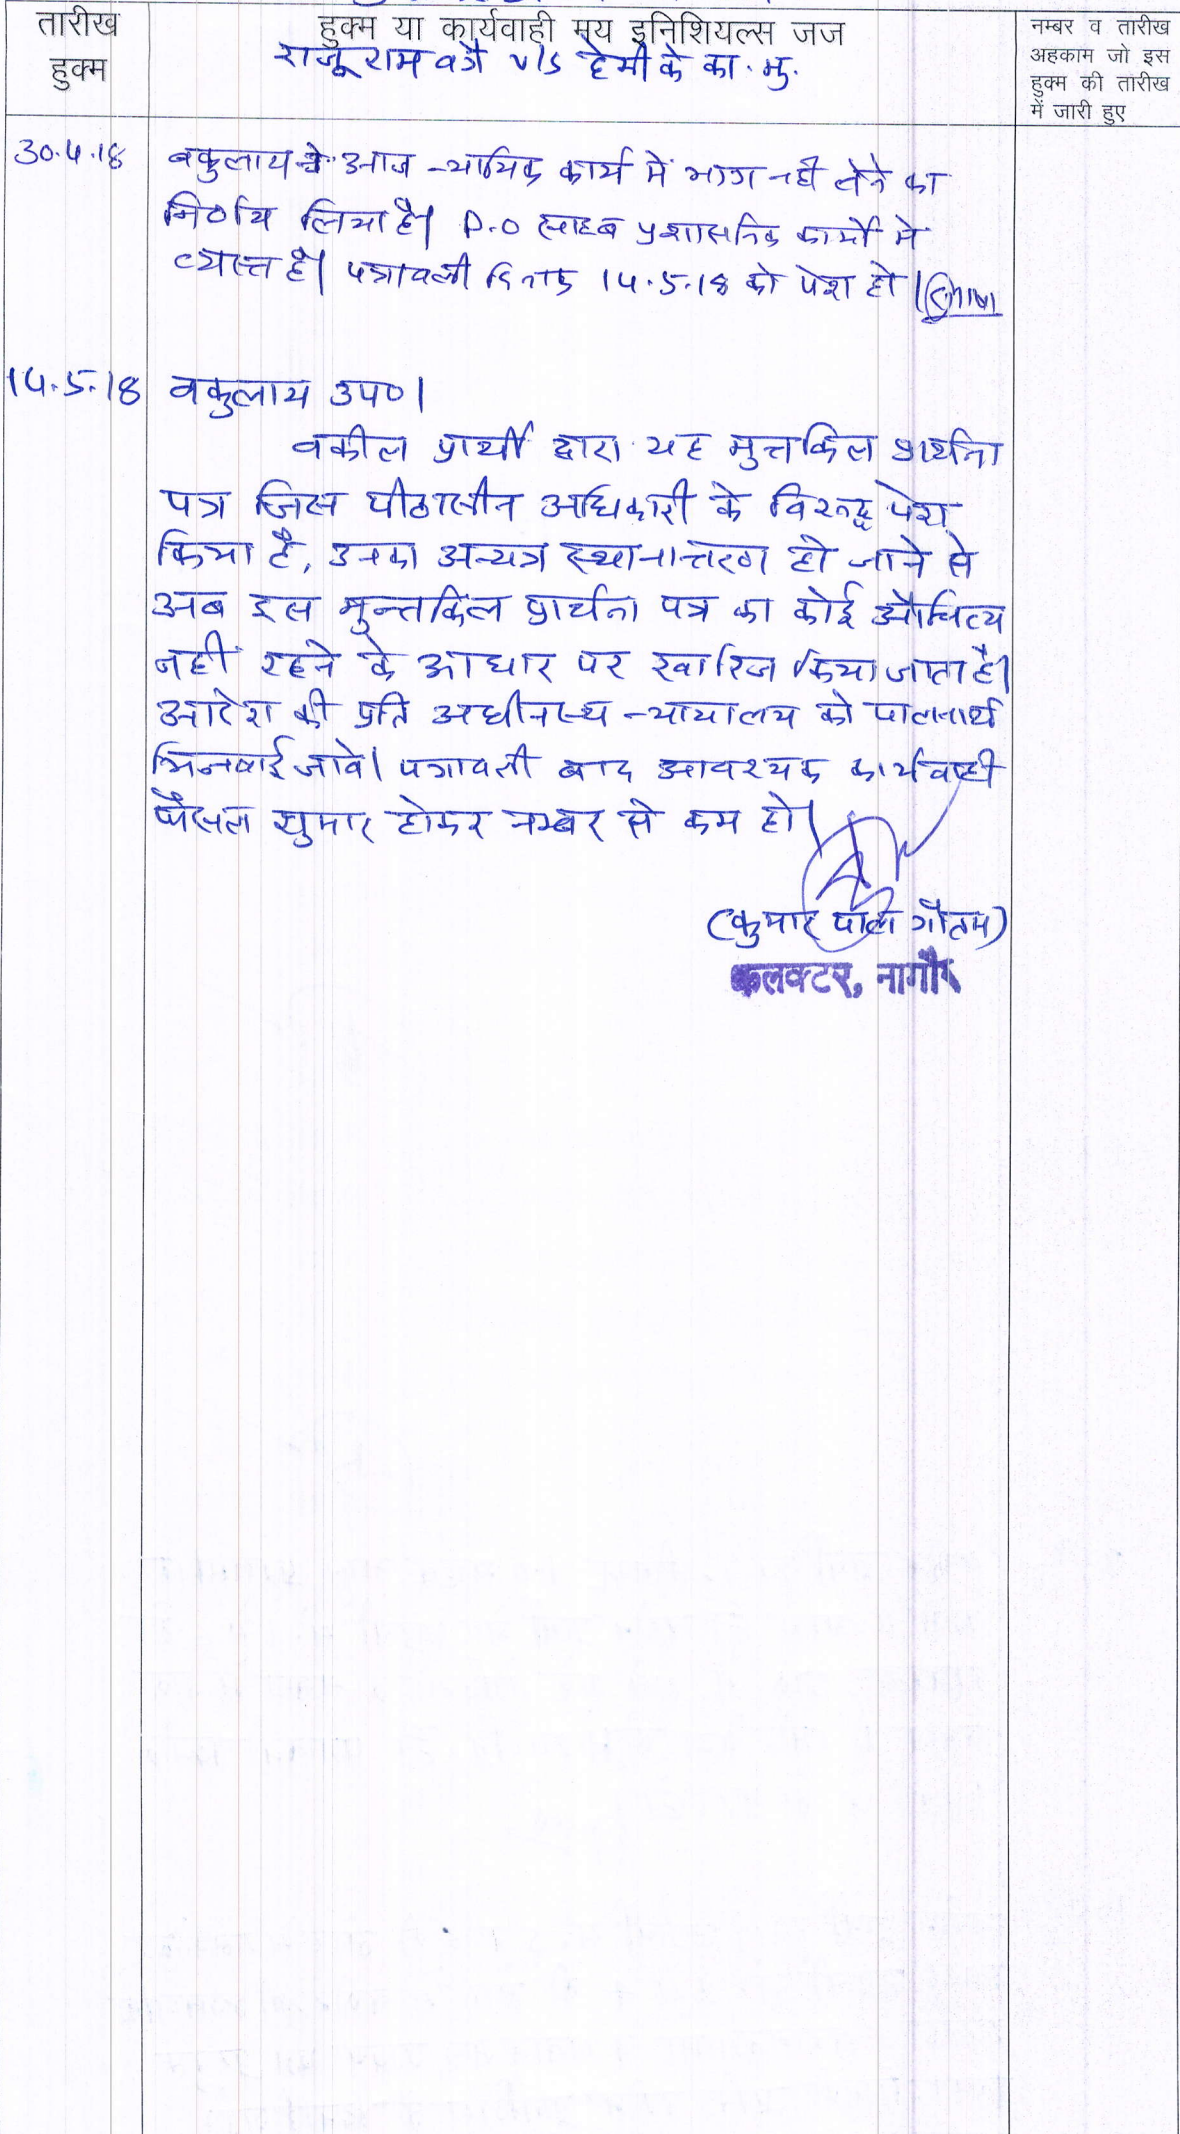 तारीख
हुक्म
हुक्म या कार्यवाही मय इनिशियल्स जज
राजूराम वगै v/s हेमी के का. मु.
नम्बर व तारीख
अहकाम जो इस
हुक्म की तारीख
में जारी हुए
30.4.18 वकुलाय ने आज न्यायिक कार्य में भाग नही लेने का
निर्णय लिया है। P.O साहब प्रशासनिक कार्यो में
व्यस्त है। पत्रावली दिनांक 14.5.18 को पेश हो।
14.5.18 वकुलाय उप०।
वकील प्रार्थी द्वारा यह मुन्तकिल प्रार्थना
पत्र जिस पीठासीन अधिकारी के विरूद्ध पेश
किया है, उनका अन्यत्र स्थानान्तरण हो जाने से
अब इस मुन्तकिल प्रार्थना पत्र का कोई औचित्य
नही रहने के आधार पर खारिज किया जाता है।
आदेश की प्रति अधीनस्थ न्यायालय को पालनार्थ
भिजवाई जावे। पत्रावली बाद आवश्यक कार्यवाही
फैसल शुमार होकर नम्बर से कम हो।
(कुमार पाल गौतम)
कलक्टर, नागौर